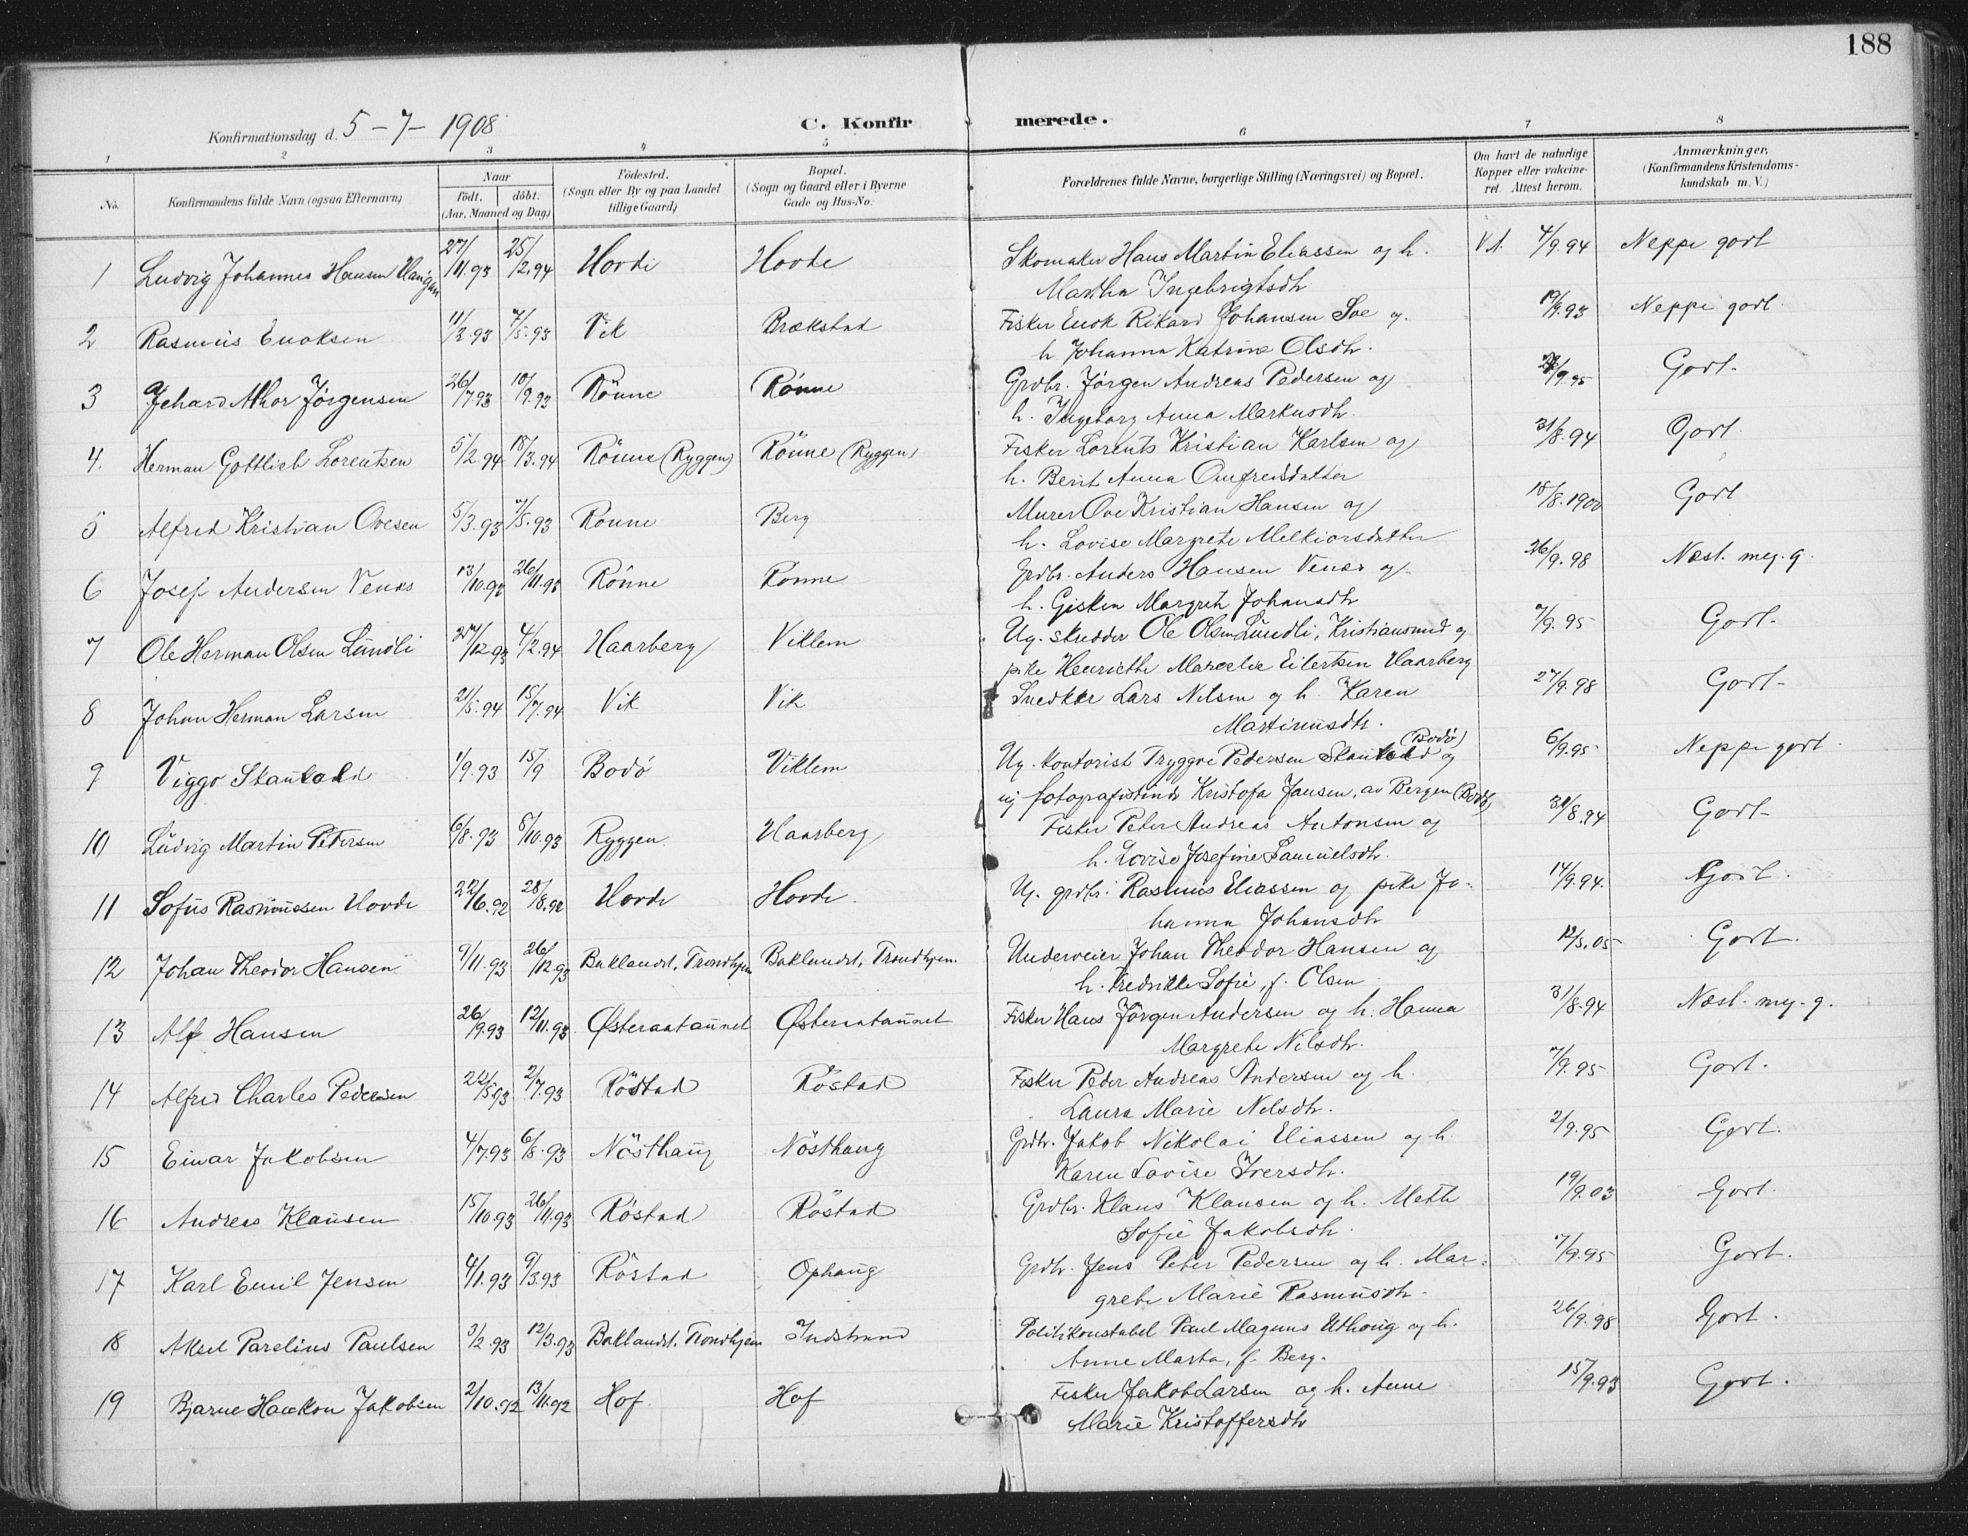 188
Konfirmationsdag d. 5-7-1908
C. Konfirmerede.
1 2 3 4 5 6 7 8
No.
Konfirmandens fulde Navn (ogsaa Efternavn)
Naar
født. døbt.
(Aar, Maaned og Dag)
Fødested.
(Sogn eller By og paa Landet
tillige Gaard)
Bopæl.
(Sogn og Gaard eller i Byerne
Gade og Hus-No.
Forældrenes fulde Navne, borgerlige Stilling (Næringsvei) og Bopæl.
Om havt de naturlige
Kopper eller vakcine-
ret. Attest herom.
Anmærkninger.
(Konfirmandens Kristendoms-
kundskab m. V.)
1 Ludvig Johannes Hansen 27/11.93 25/12.94 Hovde Hovde Skomaker Hans Martin Eliassen og h. V.A. 4/9.94 Neppe godt
Martha Ingebrigtsdtr
2 Rasmus Enoksen 11/2.93 7/5.93 Vik Brækstad Fisker Enok Rikard Johansen Soe og 19/9.93 Neppe godt
h Johanna Katrine Olsdtr.
3 Jehard Althor Jörgensen 26/7.93 10/9.93 Rönne Rönne Grdbr. Jørgen Andreas Pedersen og /9.95 Godt.
h. Ingeborg Anna Markusdtr.
4. Herman Gottlieb Lorentsen 5/2.94 18/3.94 Rönne (Ryggen) Rönne (Ryggen) Fisker Lorents Kristian Karlsen og 31/8.94 Godt.
h. Berit Anna Omfredsdatter
5 Alfred Kristian Ovesen 5/3.93 7/5.93 Rönne Berg Murer Ove Kristian Hansen og 18/8.1900 Godt
h. Lovise Margrete Melkiorsdatter
6 Josef Andersen Venæs 13/10.93 26/11.93 Rönne Rønne Grdbr. Anders Hansen Venæs og 26/9.98 Næst. meg. g.
h. Gisken Margreth Johansdtr
7 Ole Herman Olsen Lundli 27/12.93 4/2.94 Haarberg Viklem Ug. skrædder Ole Olsen Lundli, Kristiansund og 7/9.95 Godt.
pike Henriette Marselie Eilertsen Haarberg
8 Johan Herman Larsen 21/5.94 15/7.94 Vik Vik Snedker Lars Nilsen og h. Karen 27/9.98 Godt.
Martinusdtr.
9 Viggo 1/9.93 15/9 Bodö Viklem Ug. kontorist Tryggve Pedersen (Bodø) og 6/9.95 Neppe godt.
ug fotografistinde Kristofa Jansen, av Bergen (Bodö)
10 Ludvig Martin Petersen 6/8.93 8/10.93 Ryggen Haarberg Fisker Peter Andreas Antonsen og 31/8.94 Godt.
h. Lovise Josefine Samuelsdtr.
11 Sofus Rasmussen Hovde 22/6.92 28/8.92 Hovde Hovde. Ug. grdbr. Rasmus Eliassen og pike Jo- 14/9.94. Godt.
hanna Johansdtr
12 Johan Theodor Hansen 9/11.93 26/12.93 Baklandet, Trondhjem Baklandet, Trondhjem. Underveier Johan Theodor Hansen og 12/5.05 Godt.
h. Fredrikke Sofie, f. Olsen
13 Alf Hansen 26/9.93 12/11.93 Østeraataunet Østeraataunet Fisker Hans Jørgen Andersen og h. Hanna 31/8.94 Næst. meg. g.
Margrete Nilsdtr.
14 Alfred Charles Pedersen 22/5.93 2/7.93 Röstad Röstad Fisker Peder Andreas Andersen og h. 7/9.95 Godt.
Laura Marie Nelsdtr.
15 Einar Jakobsen 4/7.93 6/8.93 Nösthaug Nösthaug Grdbr. Jakob Nikolai Eliassen og h. 2/9.95 Godt.
Karen Lovise Iversdtr.
16 Andreas Klausen 15/10.93 26/11.93 Röstad Röstad Grdbr. Klaus Klausen og h. Mette 19/9.03 Godt.
Sofie Jakobsdtr.
17 Karl Emil Jensen 4/1.93 9/3.93 Röstad Ophaug Grdbr. Jens Peter Pedersen og h. Mar- 7/9.95 Godt.
grete Marie Rasmusdtr.
18 Aksel Parelius Paulsen 3/2.93 12/3.93 Baklandet, Trondhjem Indstrand Politikonstabel Paul Magnus Uthoug og h. 26/9.98 Godt.
Anne Marta, f. Berg.
19 Bjarne Haakon Jakobsen 2/10.92 13/11.92 Hof Hof Fisker Jakob Larsen og h. Anne 15/9.93 Godt.
Marie Kristoffersdtr